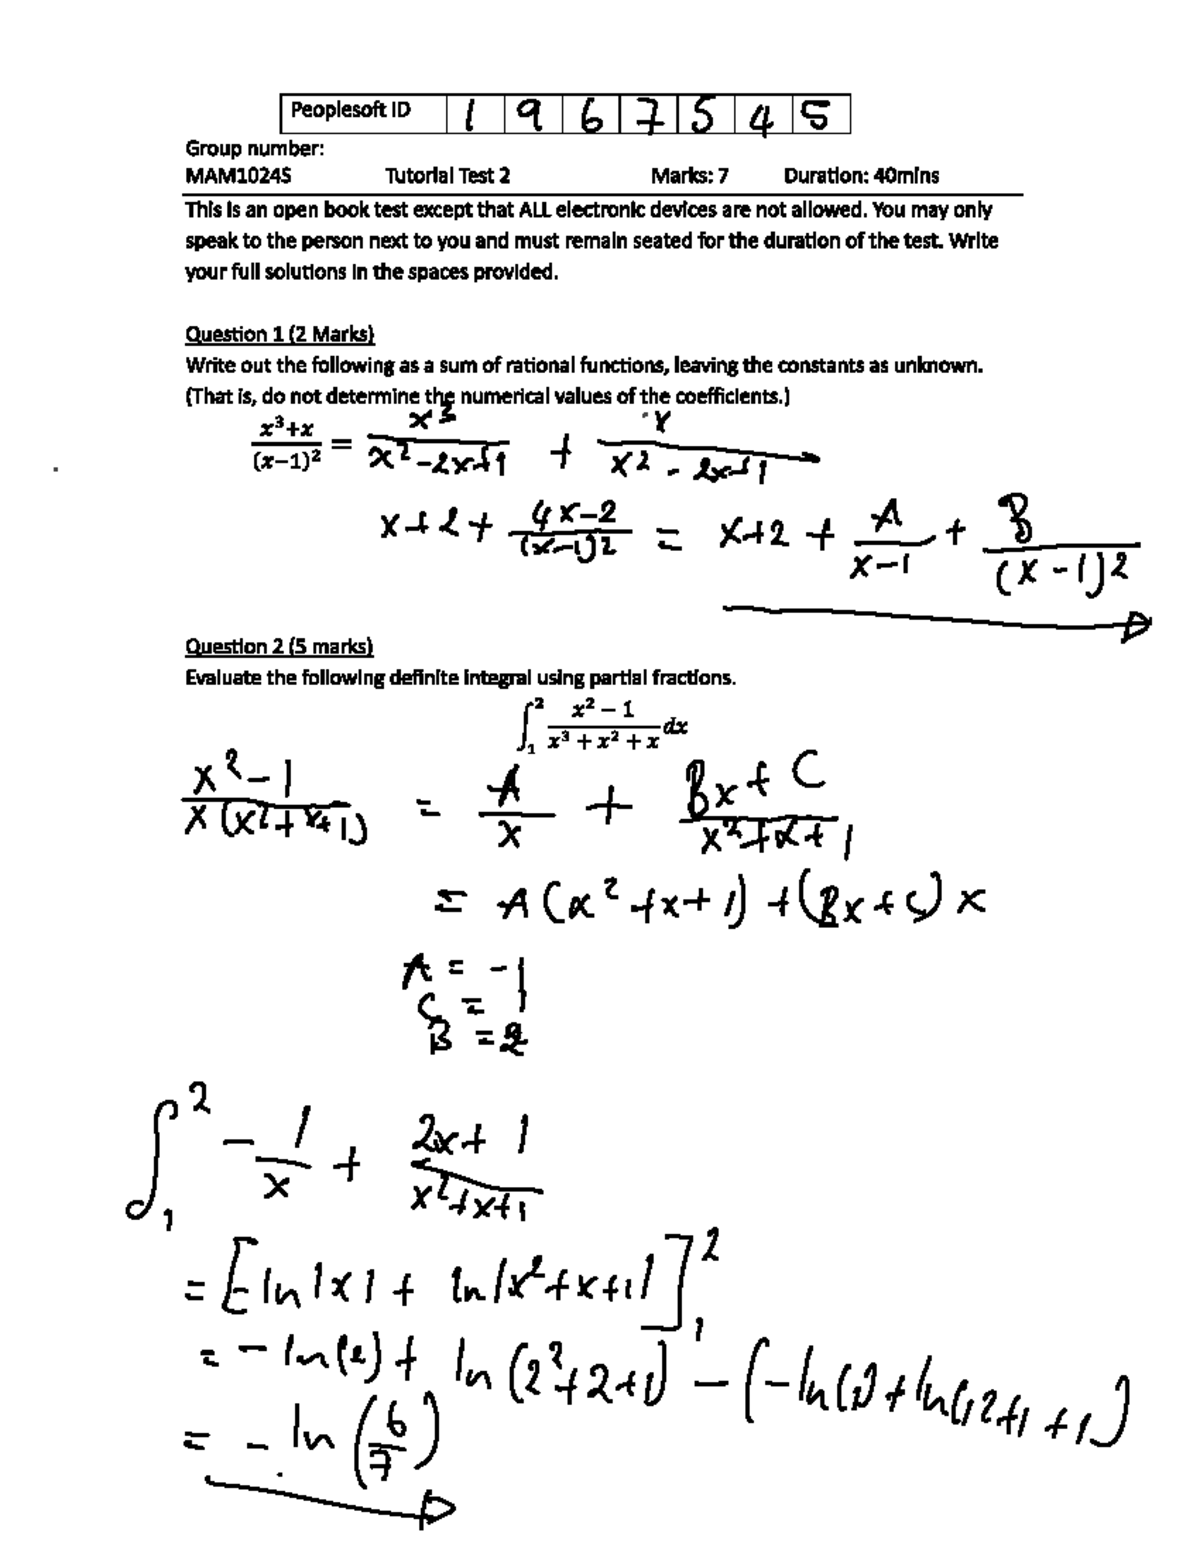 Peoplesoft ID 1 9 6 7 5 4 5
Group number:
MAM1024S Tutorial Test 2 Marks: 7 Duration: 40mins
This is an open book test except that ALL electronic devices are not allowed. You may only
speak to the person next to you and must remain seated for the duration of the test. Write
your full solutions in the spaces provided.
Question 1 (2 Marks)
Write out the following as a sum of rational functions, leaving the constants as unknown.
(That is, do not determine the numerical values of the coefficients.)
(x³+x)/(x−1)² = x³/(x²−2x+1) + x/(x²−2x+1)
x+2+ (4x−2)/(x−1)² = x+2 + A/(x−1) + B/(x−1)²
Question 2 (5 marks)
Evaluate the following definite integral using partial fractions.
∫₁² (x² − 1)/(x³ + x² + x) dx
(x²−1)/(x(x²+x+1)) = A/x + (Bx+C)/(x²+x+1)
= A(x²+x+1) + (Bx+C)x
A = −1
C = 1
B = 2
∫₁² −1/x + (2x+1)/(x²+x+1)
= [−ln|x| + ln|x²+x+1|]₁²
= −ln(2) + ln(2²+2+1) − (−ln(1)+ln(1²+1+1))
= −ln(6/7)